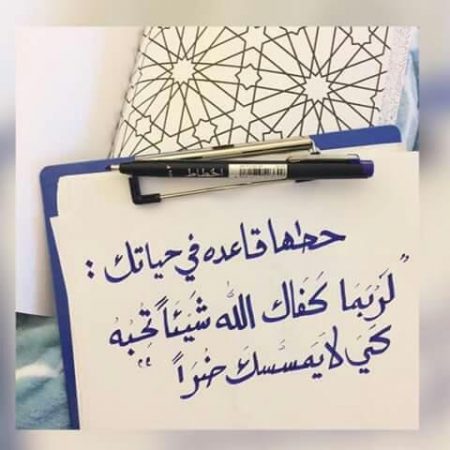 حطها قاعده في حياتك :
"لَرُبَمَا كَفَاك الله شَيَئاً تُحِبهُ
كَيَ لا يَمَسَسكَ ضُرَاً"